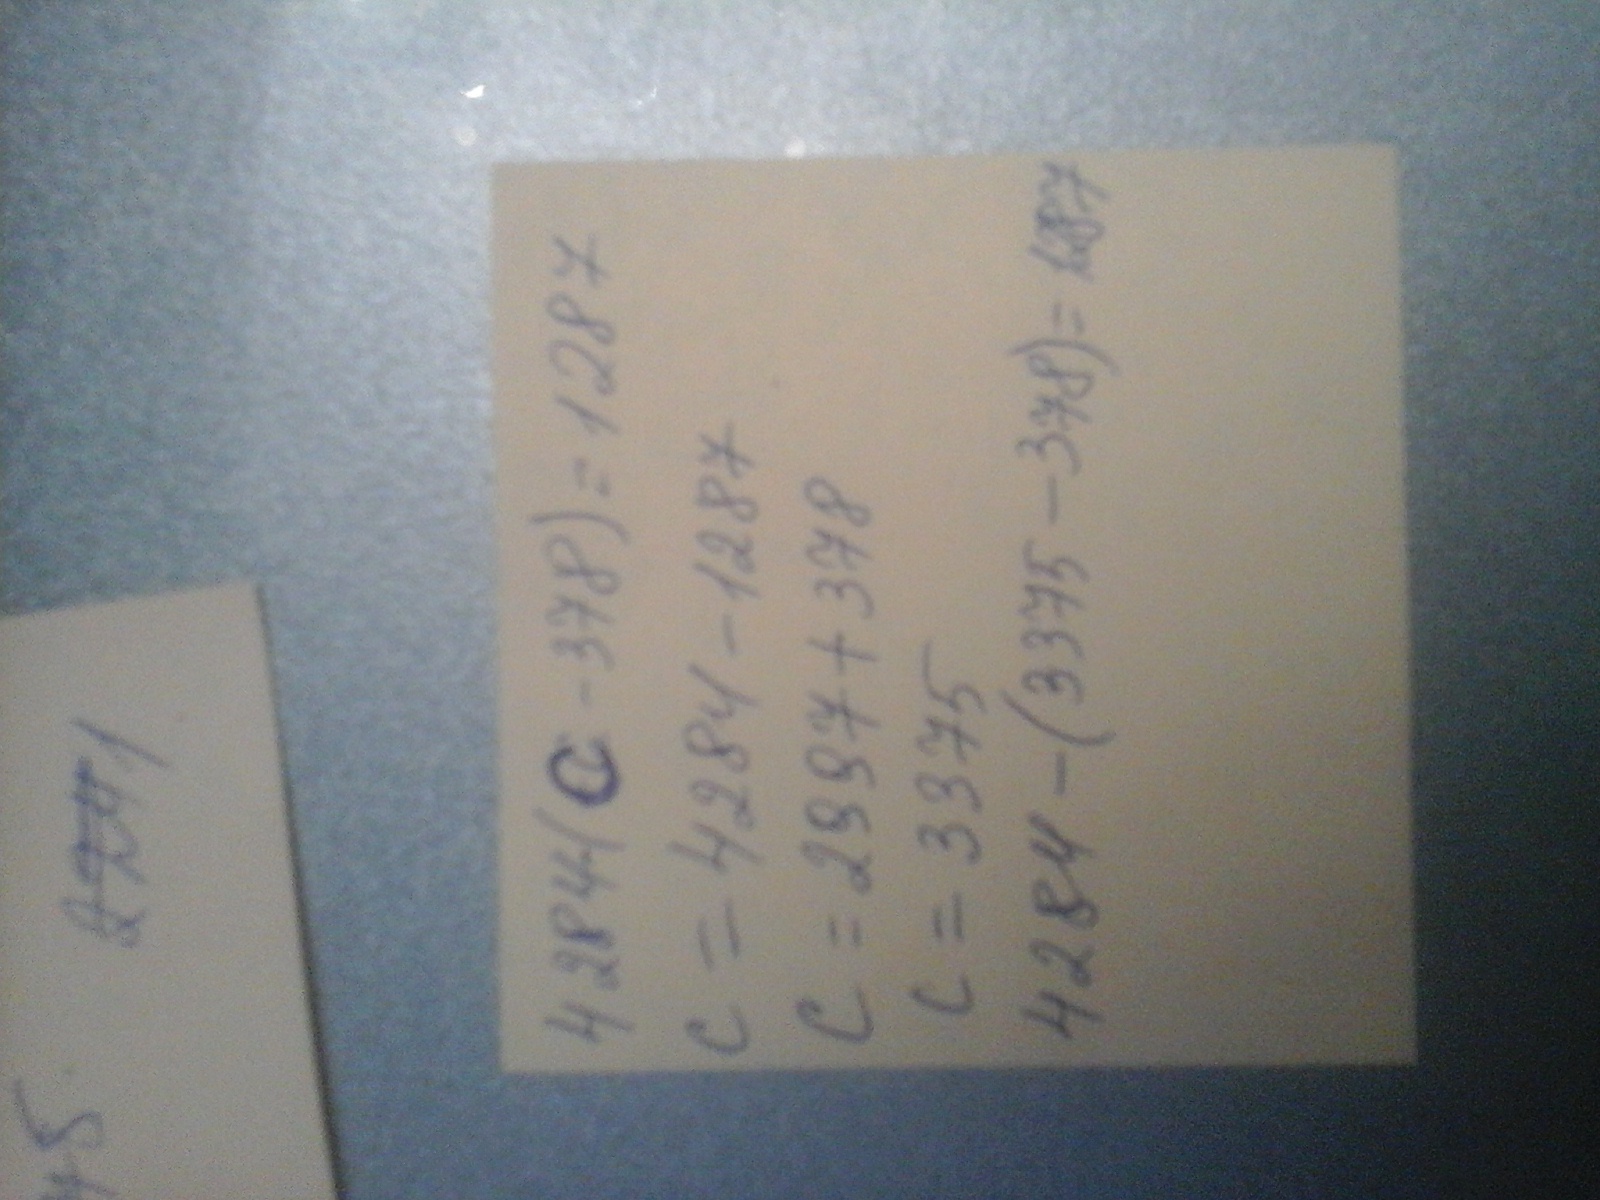 4284(C-378)=1287
C=4284-1287
C=2997+378
C=3375
4284-(3375-378)=1287